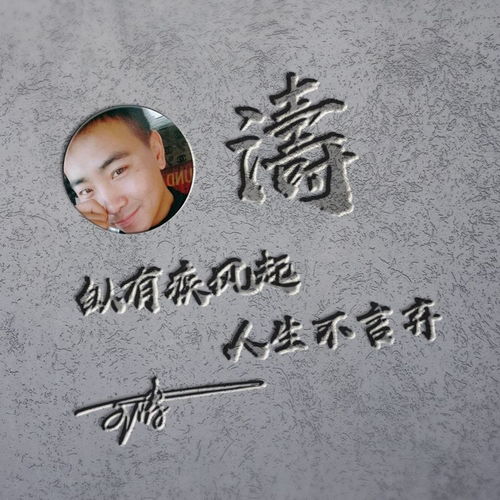 濤
纵有疾风起
人生不言弃